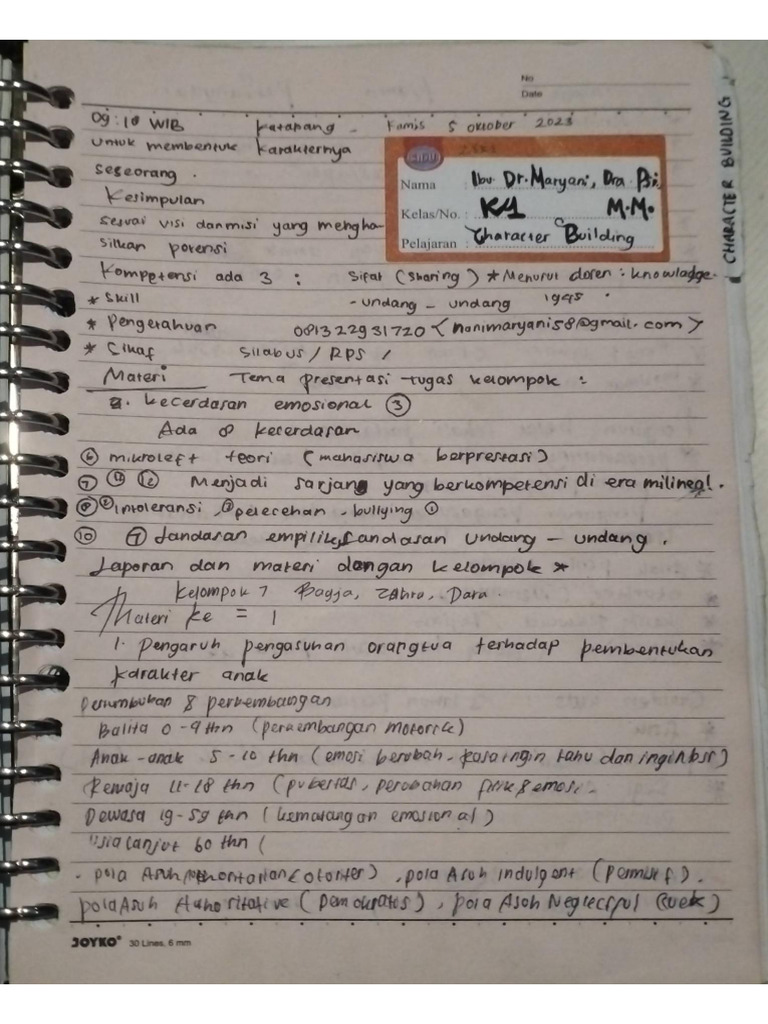 No
Date
09:10 WIB Katapang - Kamis 5 oktober 2023
untuk membentuk karakternya
seseorang.
Kesimpulan
sesuai visi dan misi yang mengha
silkan potensi
SIDU
Nama : Ibu Dr. Maryani, Dra Psi,
Kelas/No. : K4 M.M.
Pelajaran : Character Building
CHARACTER BUILDING
Kompetensi ada 3 : Sifat (sharing) * Menurut dosen : knowladge.
* Skill - undang - undang 1945
* Pengetahuan 081322931720 < nonimaryani58@gmail.com >
* Sikaf Silabus / RPS /
Materi Tema presentasi tugas kelompok :
2. kecerdasan emosional ③
Ada 8 kecerdasan
⑥ mikroleft teori (mahasiswa berprestasi)
⑦ ⑪ ⑫ Menjadi sarjana yang berkompetensi di era milineal.
⑧ ② intoleransi, ③ pelecehan - bullying ①
⑩ ⑦ Landasan empilik, Landasan undang - undang.
Laporan dan materi dengan kelompok *
Kelompok 7 Bagja, Zahra, Dara.
Materi ke = 1
1. Pengaruh pengasuhan orangtua terhadap pembentukan
karakter anak
Pertumbukan & perkembangan
Balita 0-4 thn (perkembangan motorik)
Anak-anak 5-10 thn (emosi berubah, rasa ingin tahu dan ingin bsr)
Remaja 11-18 thn (pubertas, perubahan fisik & emosi.
Dewasa 19-59 thn (kematangan emosional)
Usia lanjut 60 thn (
. pola Asuh Authoritarian (otoriter), pola Asuh indulgent (permisif).
pola Asuh Authoritative (Demokratis), pola Asoh Neglectful (cuek)
JOYKO® 30 Lines, 6 mm